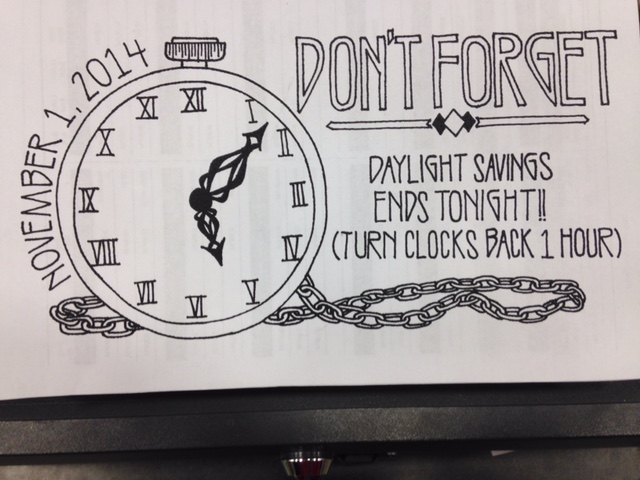 NOVEMBER 1, 2014
XII
I
II
III
IV
V
VI
VII
VIII
IX
X
XI
DON'T FORGET
DAYLIGHT SAVINGS
ENDS TONIGHT!!
(TURN CLOCKS BACK 1 HOUR)